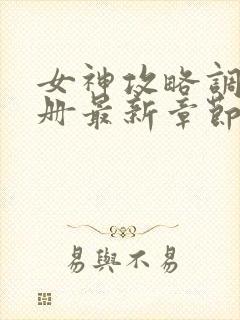 女神攻略調
册最新章節
易與不易